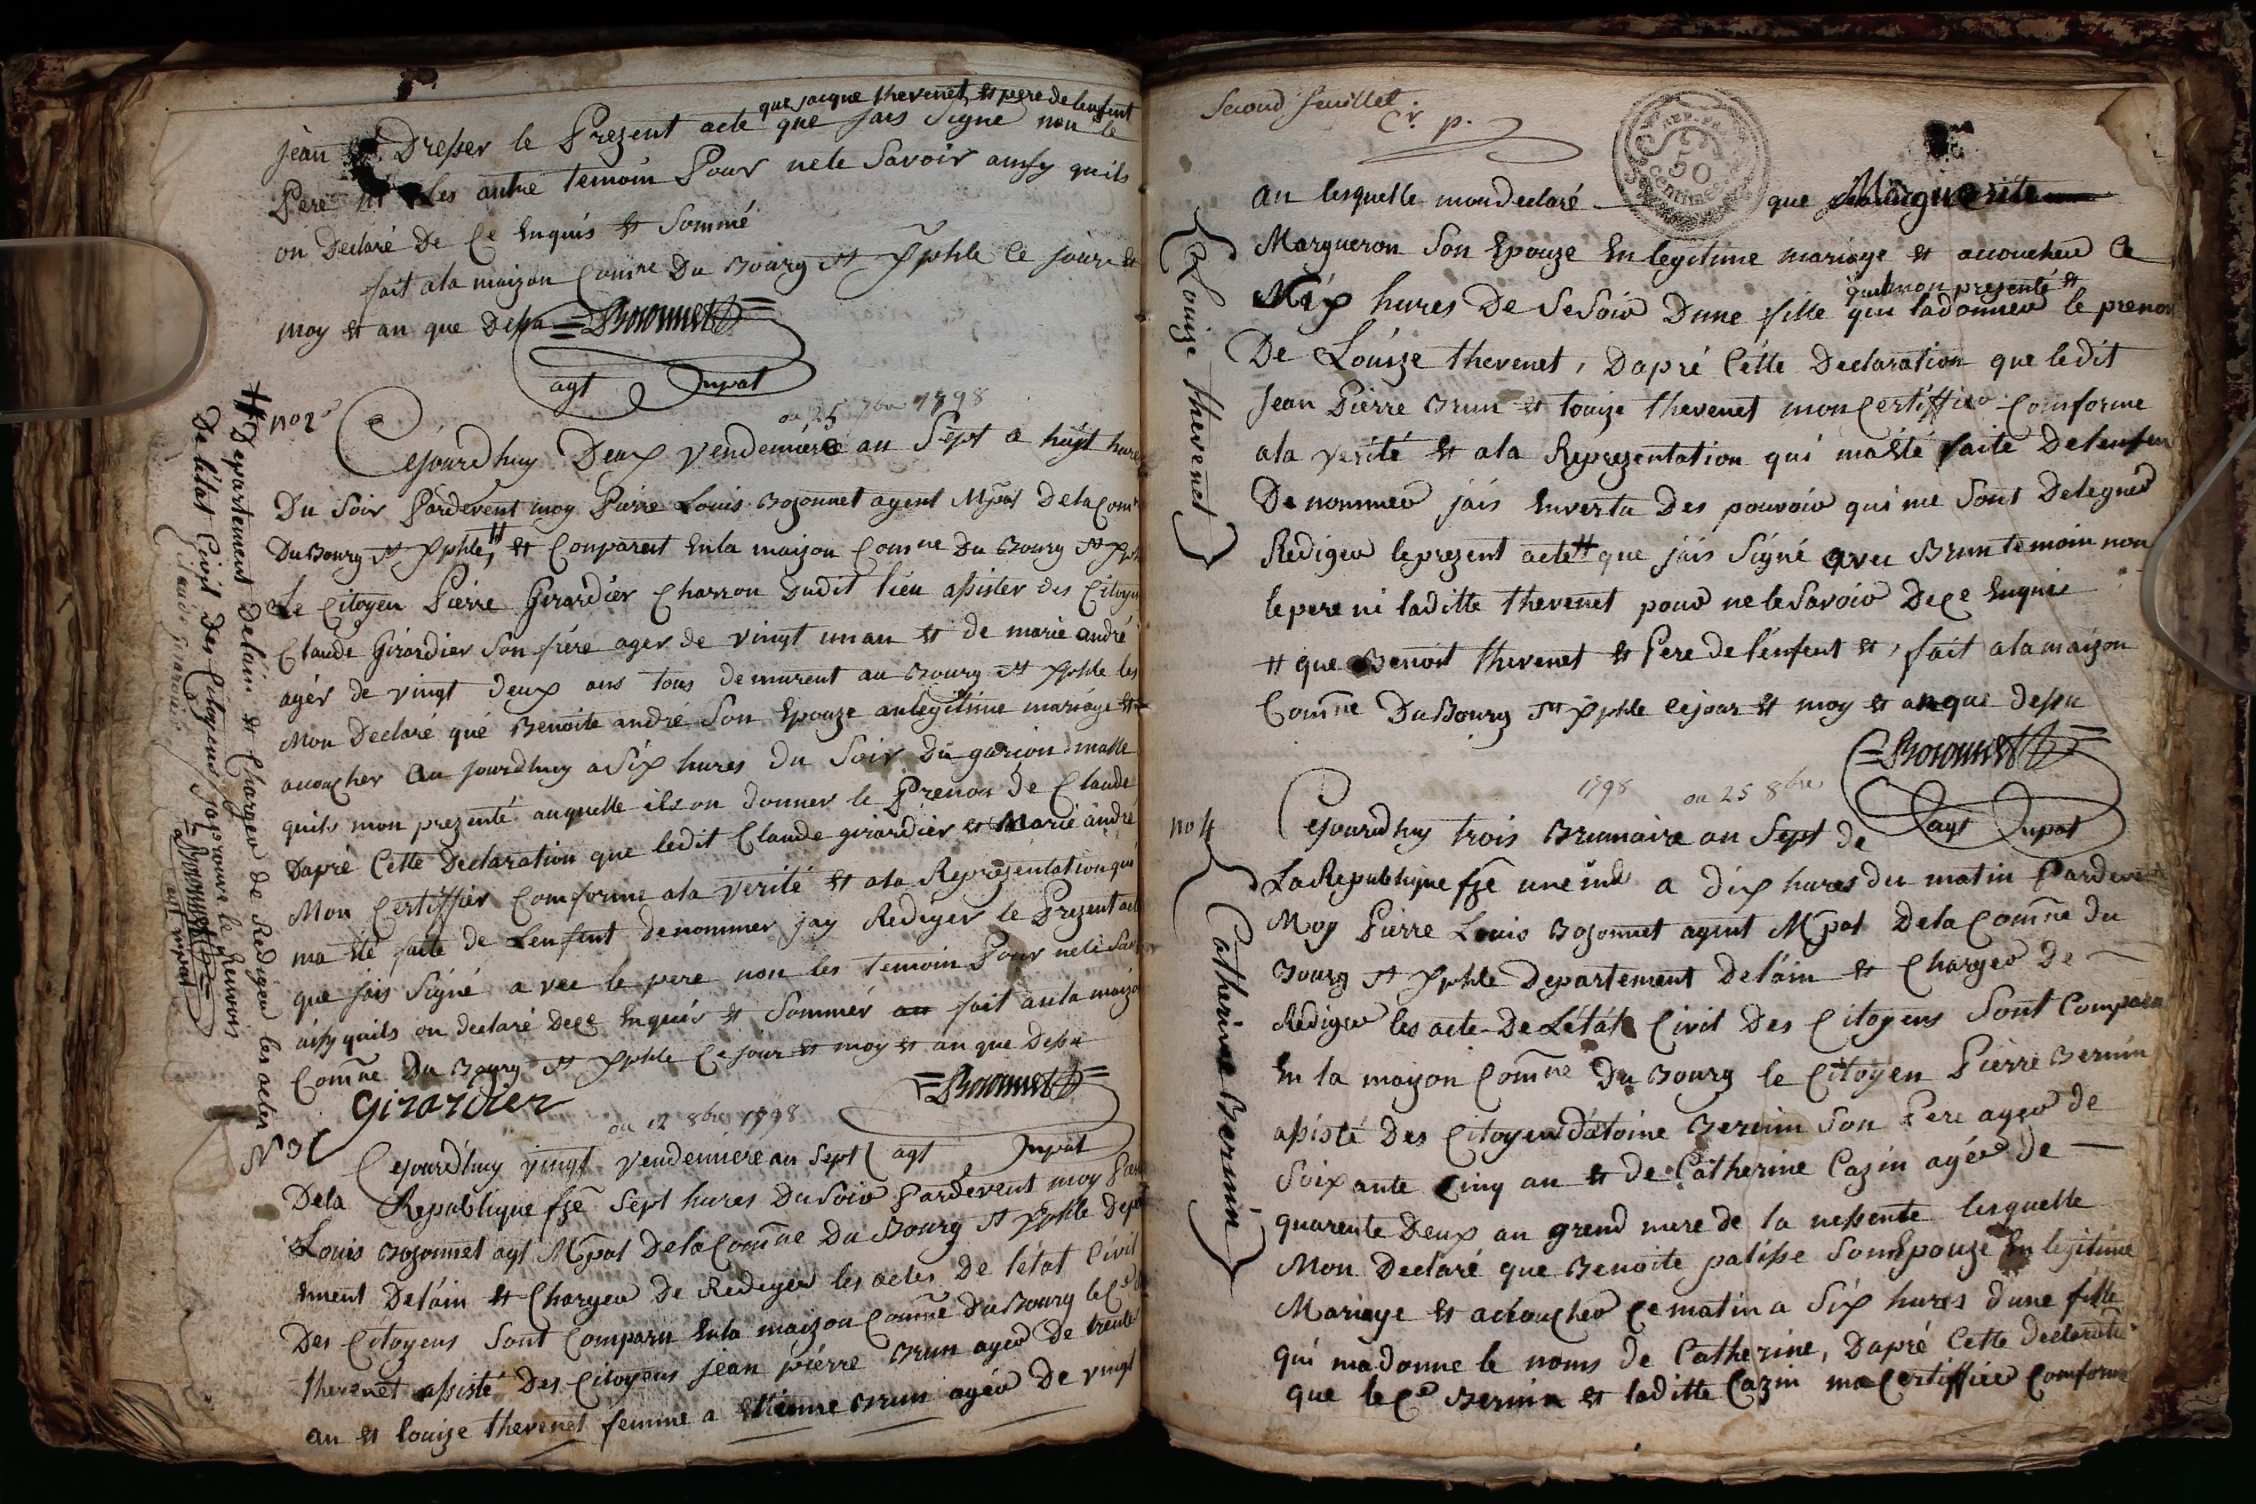 que jacque thevenet et pere de lenfent
jean Dresser le Prezent acte que jais Signé non le
Pere ni les autre temoin Pour nele Savoir ainsy quils
on Declaré De Ce Enquis et Sommé
fait ala maizon Comne Du Bourg St Xphle le jour et
moy et an que Dessu Bozonnet
agt mpal
no 2 ou 25 7bre 1798
Cejourdhuy Deux Vendemiére an Sept a huit hure
Du Soir Pardevent moy Pierre Louis Bozonnet agent Mpal Dela Comne
Du Bourg St Xphle, # et Comparent Enla maizon Comne Du Bourg St Xph
Le Citoyen Pierre Girardier Charron Dudit lieu assister des Citoyen
Claude Girardier Son frére ager de vingt un an et de marie andré
agér de vingt deux ans tous demurent au Bourg St Xphle les
Mon Declaré qué Benoite andré Son Epouze anlegitime mariage et
acoucher Au jourdhuy a Six hures du Soir Du garcion malle
quils mon prezenté auquelle ils on donner le Prenon de Claude
Dapré Cette Declaration que ledit Claude girardier et Marie andré
Mon Certiffier Comforme ala verité et ala Reprezentation qui
ma été faite de Lenfent denommer jay Rediger le Prezent acte
que jais Signé avec le pere non les temoin Pour nele Sav
aisy quils on declaré dece Enquis et Sommér an fait anla maizo
Comne Du Bourg St Xphle Ce jour et moy et an que Dessu
Girardier Bozonnet
agt mpal
# Departement Delain et Charger de Rediger les actes
De létat Civil Des Citoyens japrouve le Renvois
Bozonnet
agt mpal
Claude Girardier
No 3 ou 12 8bre 1798
Cejourdhuy vingt Vendemiére an Sept
Dela Republique fse Sept hures Du Soir Pardevent moy Pier
Louis Bozonnet agt Mpal Dela Comne Du Bourg St Xphle depa
ement Delain et Charger De Rediger les actes De létat Civil
Des Citoyens Sont Comparu Enla maizon Comne Du Bourg le Cen
thevenet assisté Des Citoyens jean piérre Brun ager de trente
an et louize thevenet femme a Etienne Brun agér De vingt
Second feuillet
C. p.
REP. FRA.
50
centimes
an lesquelle mon declaré que Marguerite
Margueron Son Epouze En legitime mariage et accoucher a
quil mon presenté et
Six hures De Se Soir Dune fille qui ladonner le prenon
De Louize thevenet, Dapré Cétte Declaration que ledit
Jean Pierre Brun et louize thevenet mon Certiffier Comforme
ala verité et ala Reprezentation qui maété faite Delenfen
Denommer jais Envertu Des pouvoir qui me Sont Delegner
Rediger leprezent acte # que jais Signé avec Brun temoin non
lepere ni laditte thevenet pour ne le Savoir Dece Enquis
# que Benoit thevenet et Pere de lenfent et, fait ala maizon
Comne Du Bourg St Xphle cejour et moy et an que dessu
Bozonnet
agt mpal
{Louize thevenet}
1798 ou 25 8bre
no 4 Cejourdhuy trois Brumaire an Sept de
La Republique fse une ind a dix hures du matin Pardeve
Moy Pierre Louis Bozonnet agent Mpal Dela Comne du
Bourg St Xphle Departement Delain et Charger De
Rediger les acte De Létat Civil Des Citoyens Sont Compara
En la maizon Comne Du Bourg le Citoyen Pierre Bernin
assisté Des Citoyens dátoine Bernin Son Pere ager de
Soixante Cinq an et de Catherine Cazin agér de
quarente Deux an grend mere de la nessente lesquelle
Mon Declaré que Benoite palisse Son Epouze En legitime
Mariage et acoucher Ce matin a Six hures dune fille
qui ma donne le noms de Catherine, Dapré Cette declaratio
que le Cen Bernin et laditte Cazin ma Certiffier Comforme
Catherine Bernin